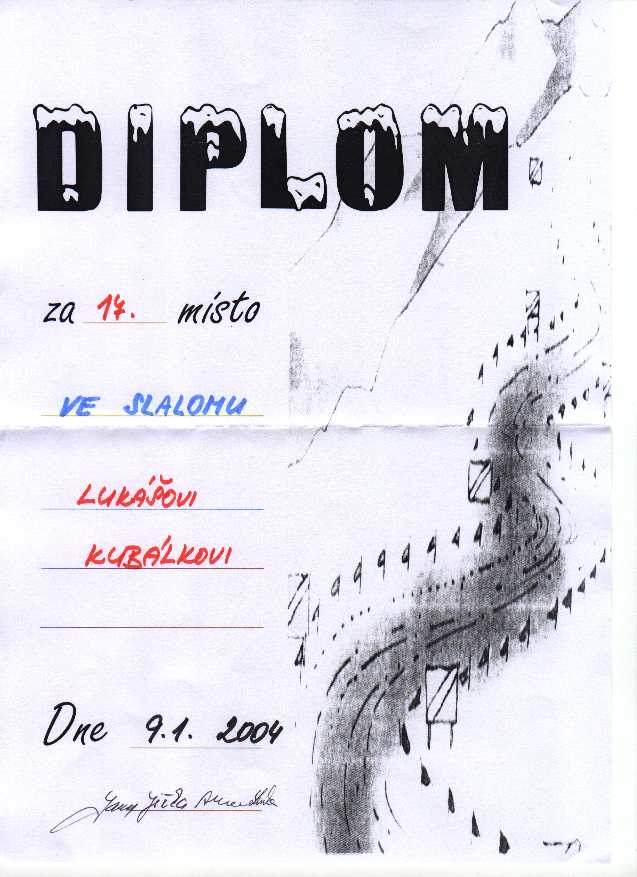 DIPLOM
za 17. místo
VE SLALOMU
LUKÁŠOVI
KUBÁLKOVI
Dne 9.1. 2004